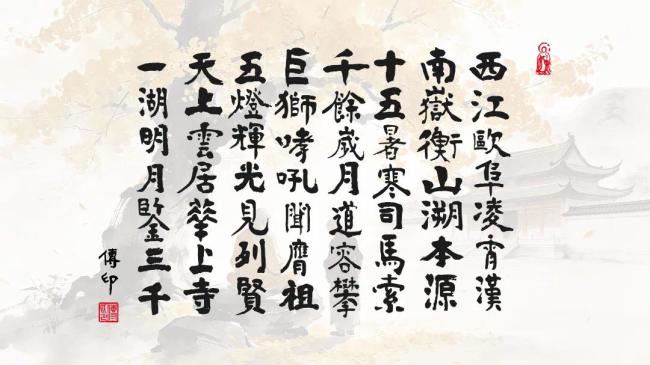 西江歐阜凌霄漢
南嶽衡山溯本源
十五暑寒司馬索
千餘歲月道容攀
巨獅哮吼聞膺祖
五燈輝光見列賢
天上雲居華上寺
一湖明月鑒三千
傳印